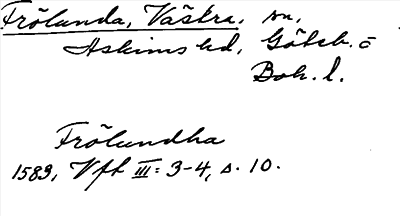 Frölunda, Västra, sn,
Askims hd, Göteb. o
Boh. l.
Frölundha
1583, Vfl III: 3-4, s. 10.